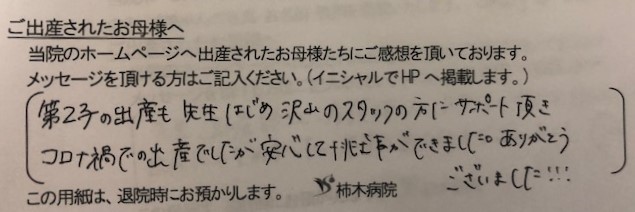 ご出産されたお母様へ
当院のホームページへ出産されたお母様たちにご感想を頂いております。
メッセージを頂ける方はご記入ください。(イニシャルでHPへ掲載します。)
第2子の出産も先生はじめ沢山のスタッフの方にサポート頂き
コロナ禍での出産でしたが安心して挑む事ができました。ありがとう
ございました!!!
この用紙は、退院時にお預かりします。 柿木病院